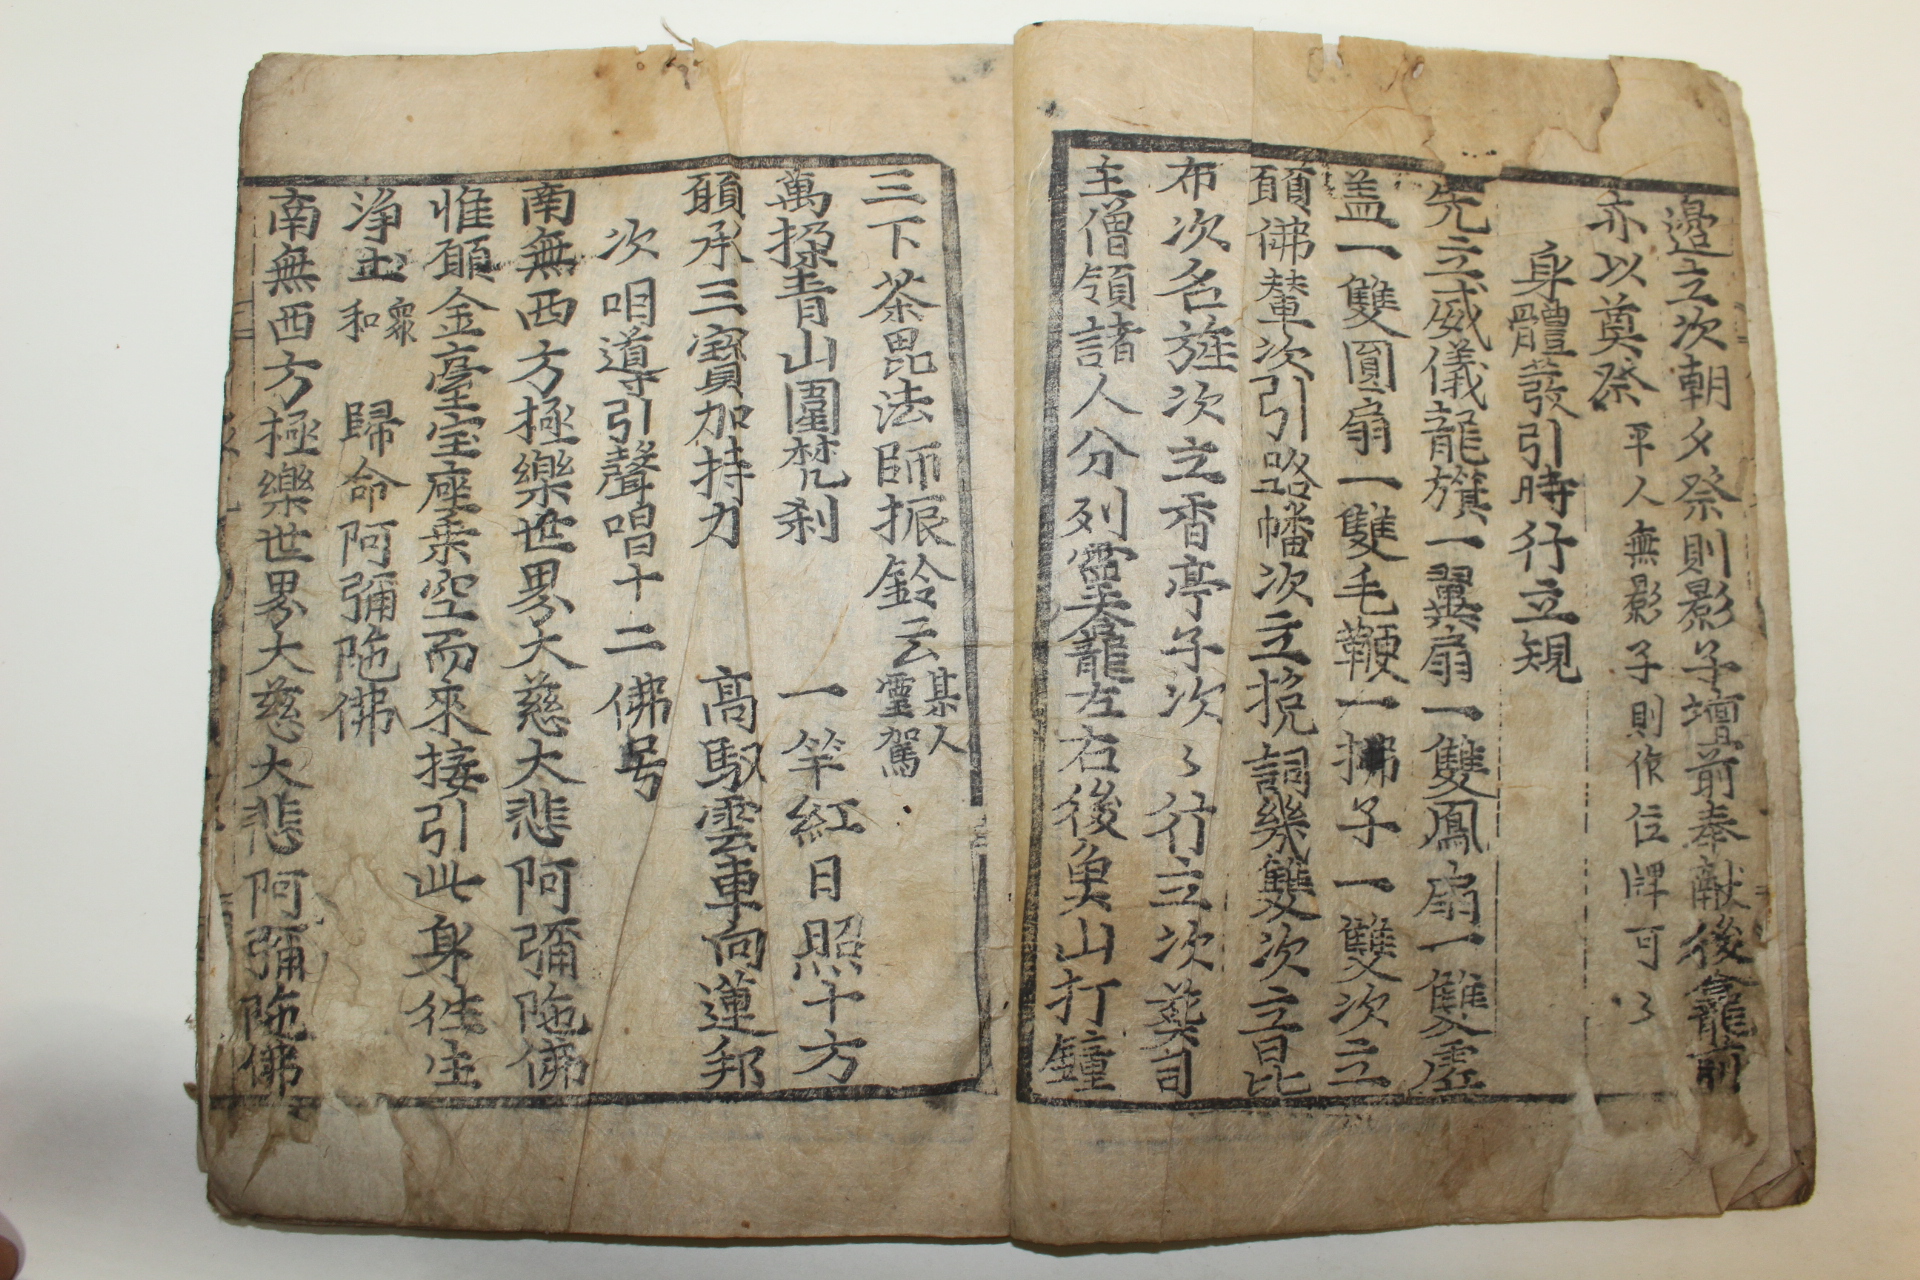 邉立次朝夕祭則影子壇前奉献後龕前
亦以奠祭平人無影子則作位牌可々
身體發引時行立䂓
先立威儀龍旗一翼扇一雙鳳扇一雙虛
盖一雙圓扇一雙毛鞭一拂子一雙次立
願佛輦次引路幡次立挽詞幾雙次立曰比
布次名旌次立香亭子次々行立次䓁司
主僧領諸人分列靈龕左右後奥山打鐘
三下茶毗法師振鈴云某人靈駕
萬搩青山圍梵刹 一竿紅日照十方
願承三寶加持力 高馭雲車向蓮邦
次唱導引聲唱十二佛号
南無西方極樂世界大慈大悲阿彌陁佛
惟願金臺宝座乗空而來接引此身徃生
浄土衆和 歸命阿彌陁佛
南無西方極樂世界大慈大悲阿彌陁佛